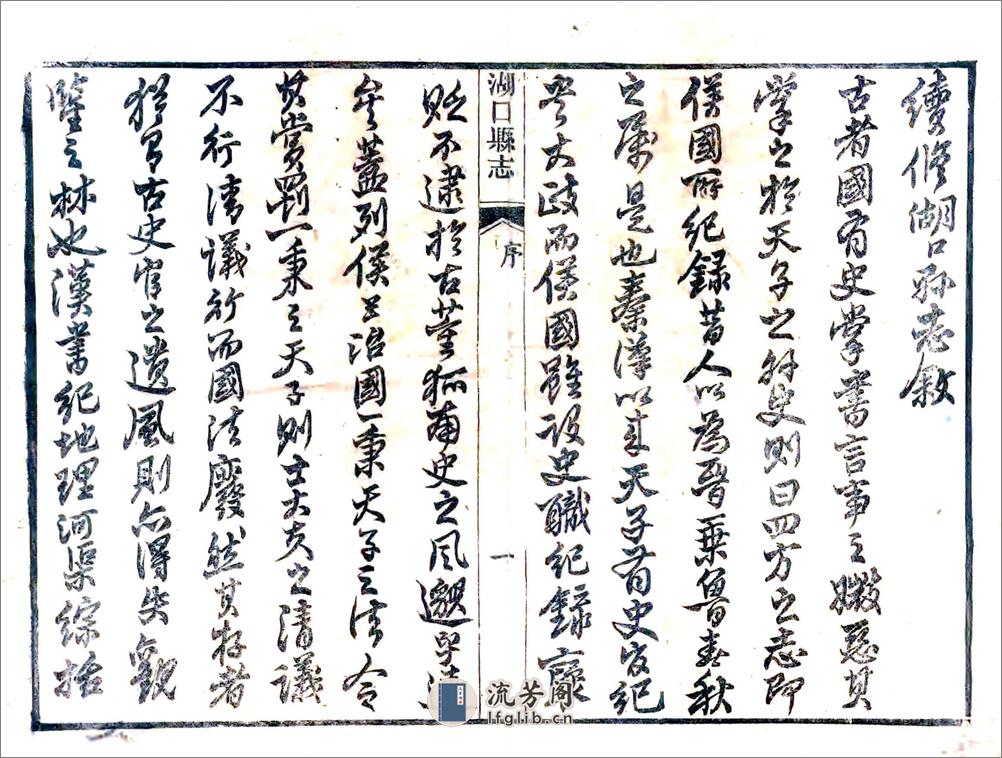 續修湖口縣志敘
古者國有史掌書言事之媺惡其
掌之於天子之外史則曰四方之志即
侯國所紀錄昔人以為晉乘魯春秋
之屬是也秦漢以來天子有史官紀
大政而侯國雖設史職紀錄褒
湖口縣志
序
一
貶不逮於古董狐南史之風邈乎
矣蓋列侯之治國一秉天子之法令
其賞罰一秉之天子則士大夫之清議
不行清議行而國法廢然其存者
猶有古史官之遺風則亦得失觀
鑒之林也漢書紀地理河渠綜括
流芳阁
lfglib.cn